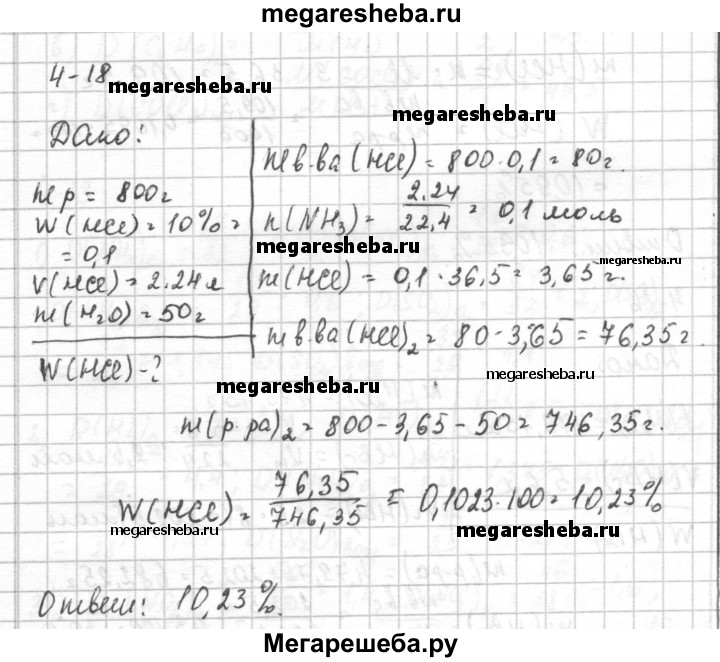 megaresheba.ru
4-18
megaresheba.ru
megaresheba.ru
Дано:
m р = 800г
W(HCl) = 10% =
= 0,1
V(HCl) = 2.24л
m(H₂O) = 50г
W(HCl) - ?
m в-ва (HCl) = 800·0,1 = 80г.
n(NH₃) = 2.24/22,4 = 0,1 моль
megaresheba.ru
megaresheba.ru
m(HCl) = 0,1·36,5 = 3,65г.
m в-ва (HCl)₂ = 80-3,65 = 76,35г.
megaresheba.ru
megaresheba.ru
m(р-ра)₂ = 800-3,65-50 = 746,35г.
W(HCl) = 76,35/746,35 = 0,1023·100 = 10,23%
megaresheba.ru
megaresheba.ru
Ответ: 10,23%.
Мегарешеба.ру